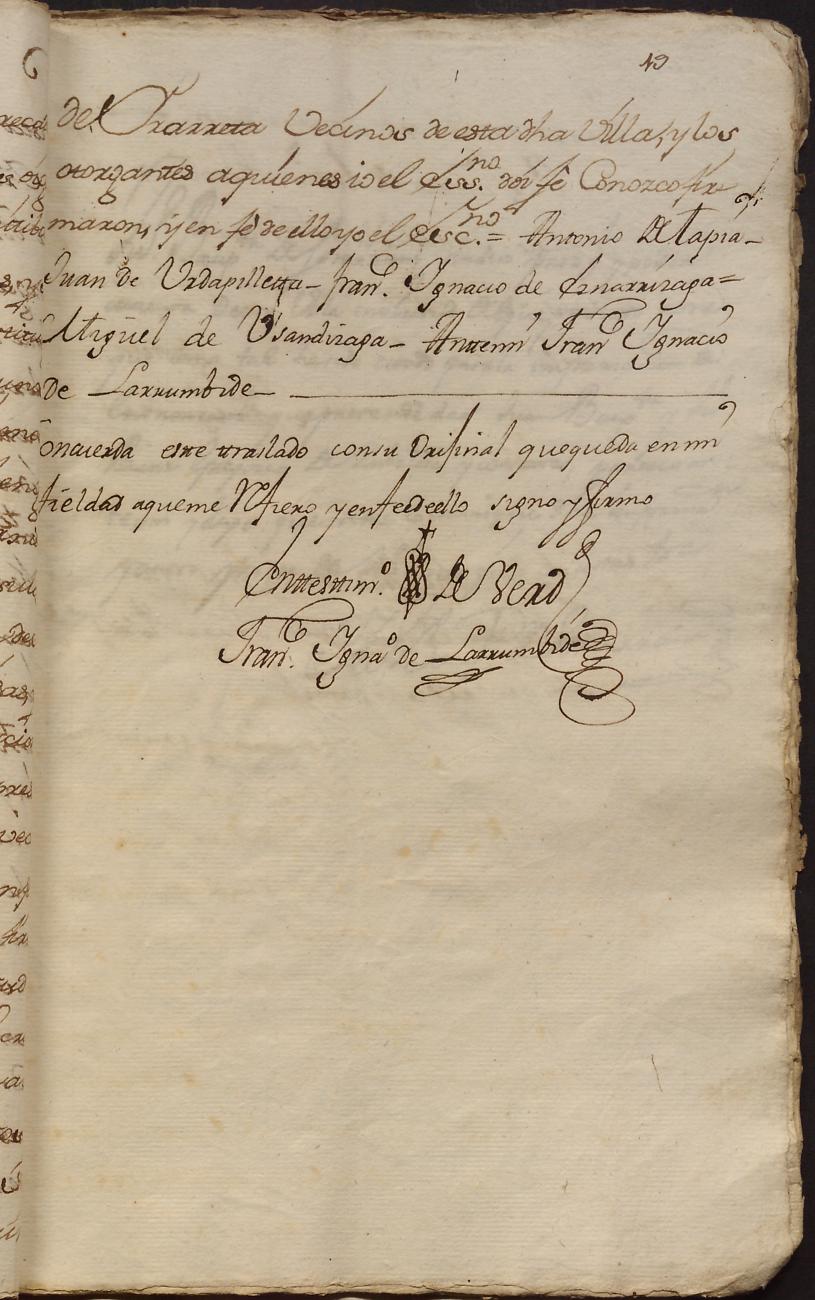 19
de Orarreta Vecinos de esta dha Villa, y los
otorgantes aquienes io el Ess.no doi fe Conozco fir
maron, y en fe de ello yo el Esc.no = Antonio De Tapia –
Juan de Urdapilletta – fran.co Ignacio de Isnarrizaga =
Miguel de Usandizaga – Anttemi Fran.co Ignacio
de Larrumbide –
Concuerda este traslado consu Orijinal que queda en mi
fieldad aqueme Refiero y enfeedeello signo y firmo
Enttesttim.o De Verd
Fran.co Igna.o de Larrumbide